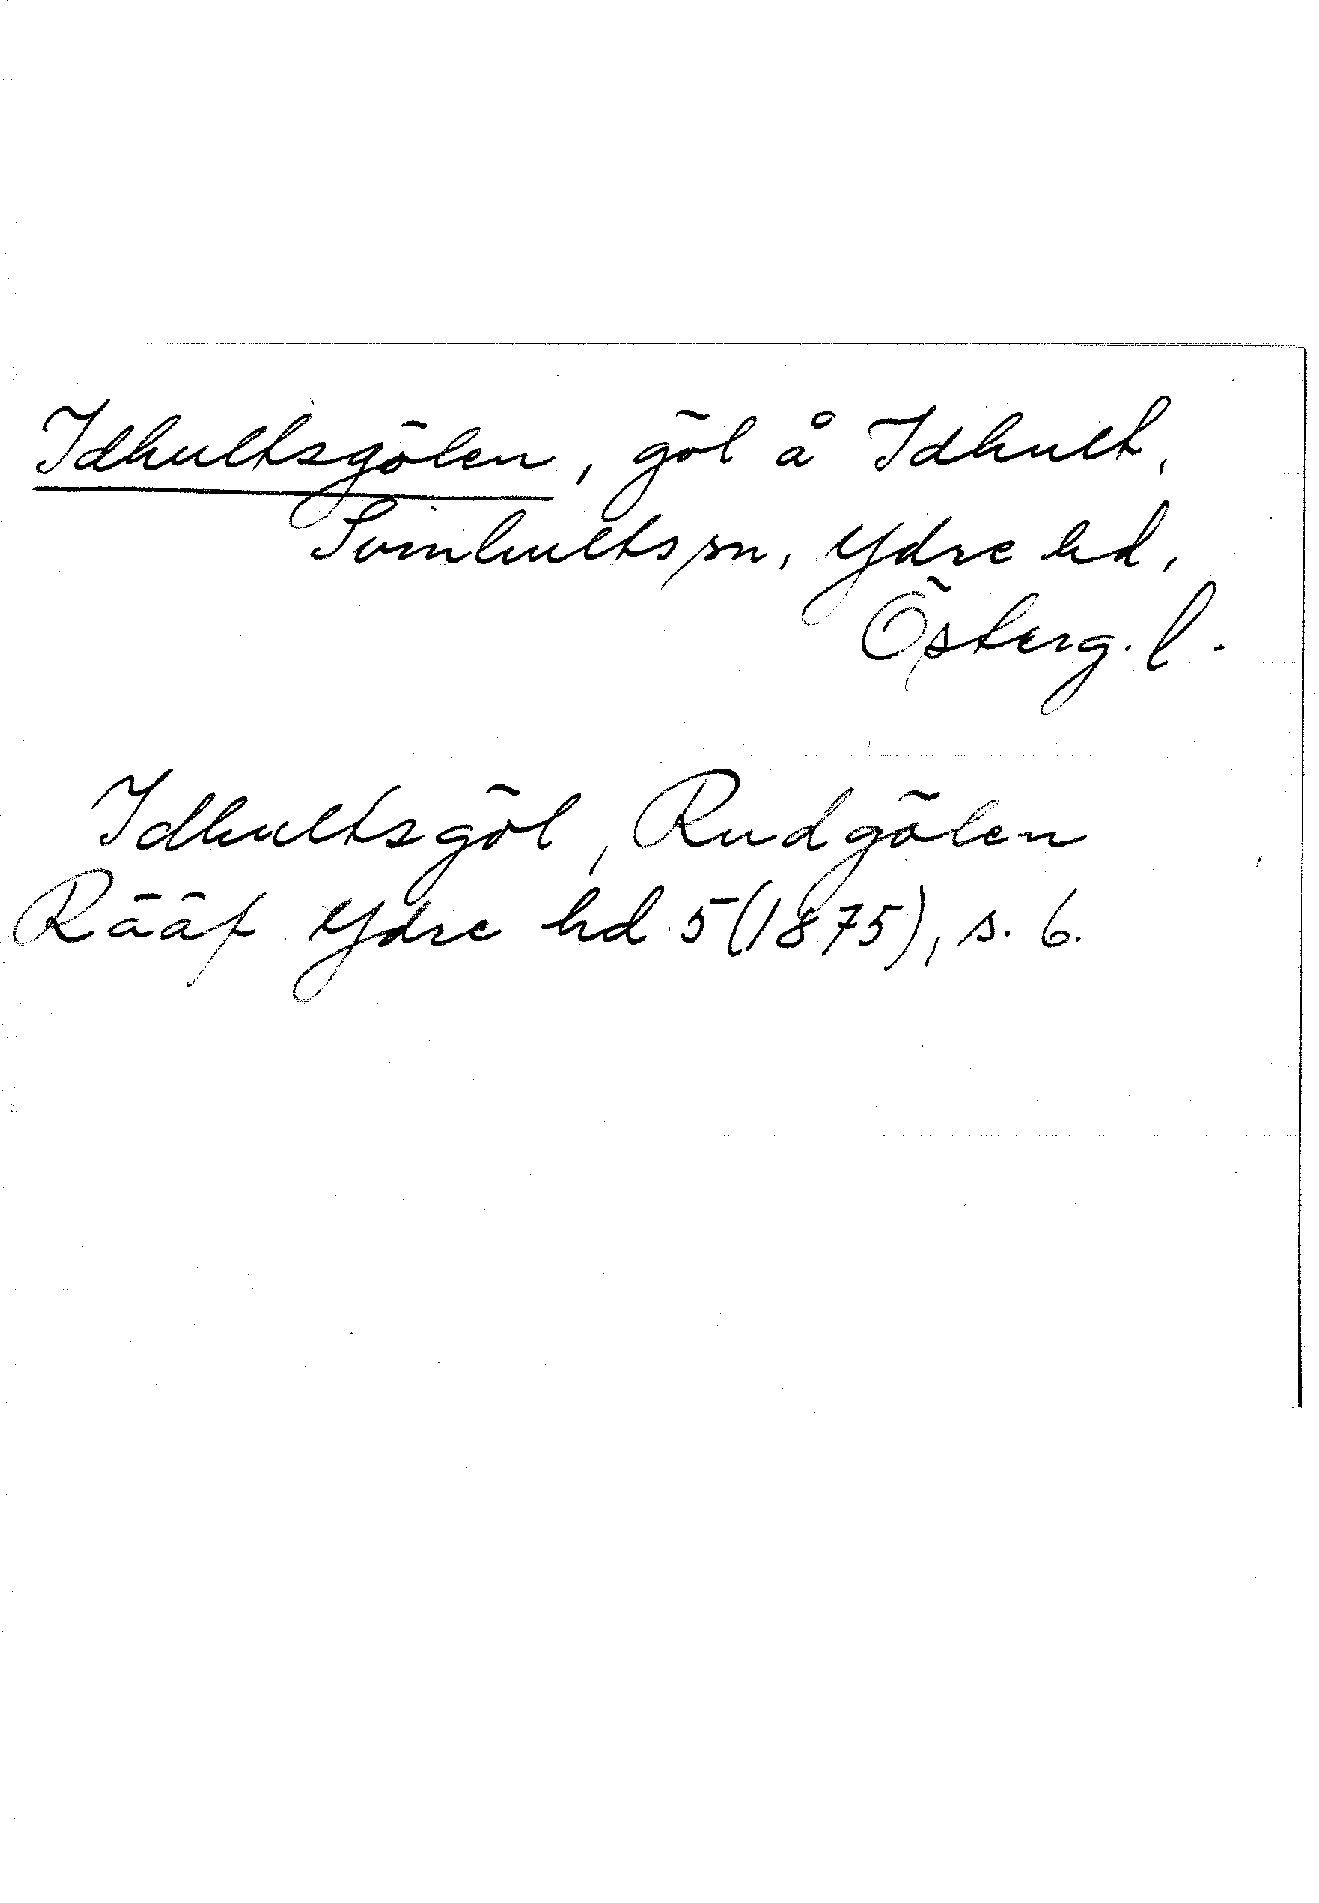 Idhultsgölen, göl å Idhult,
Svinhults sn, Ydre hd,
Österg. l.
Idhultsgöl, Rudgölen
Rääf Ydre hd 5(1875), s. 6.